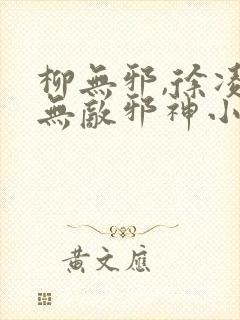 柳無邪,徐凌
無敵邪神小
黃文應